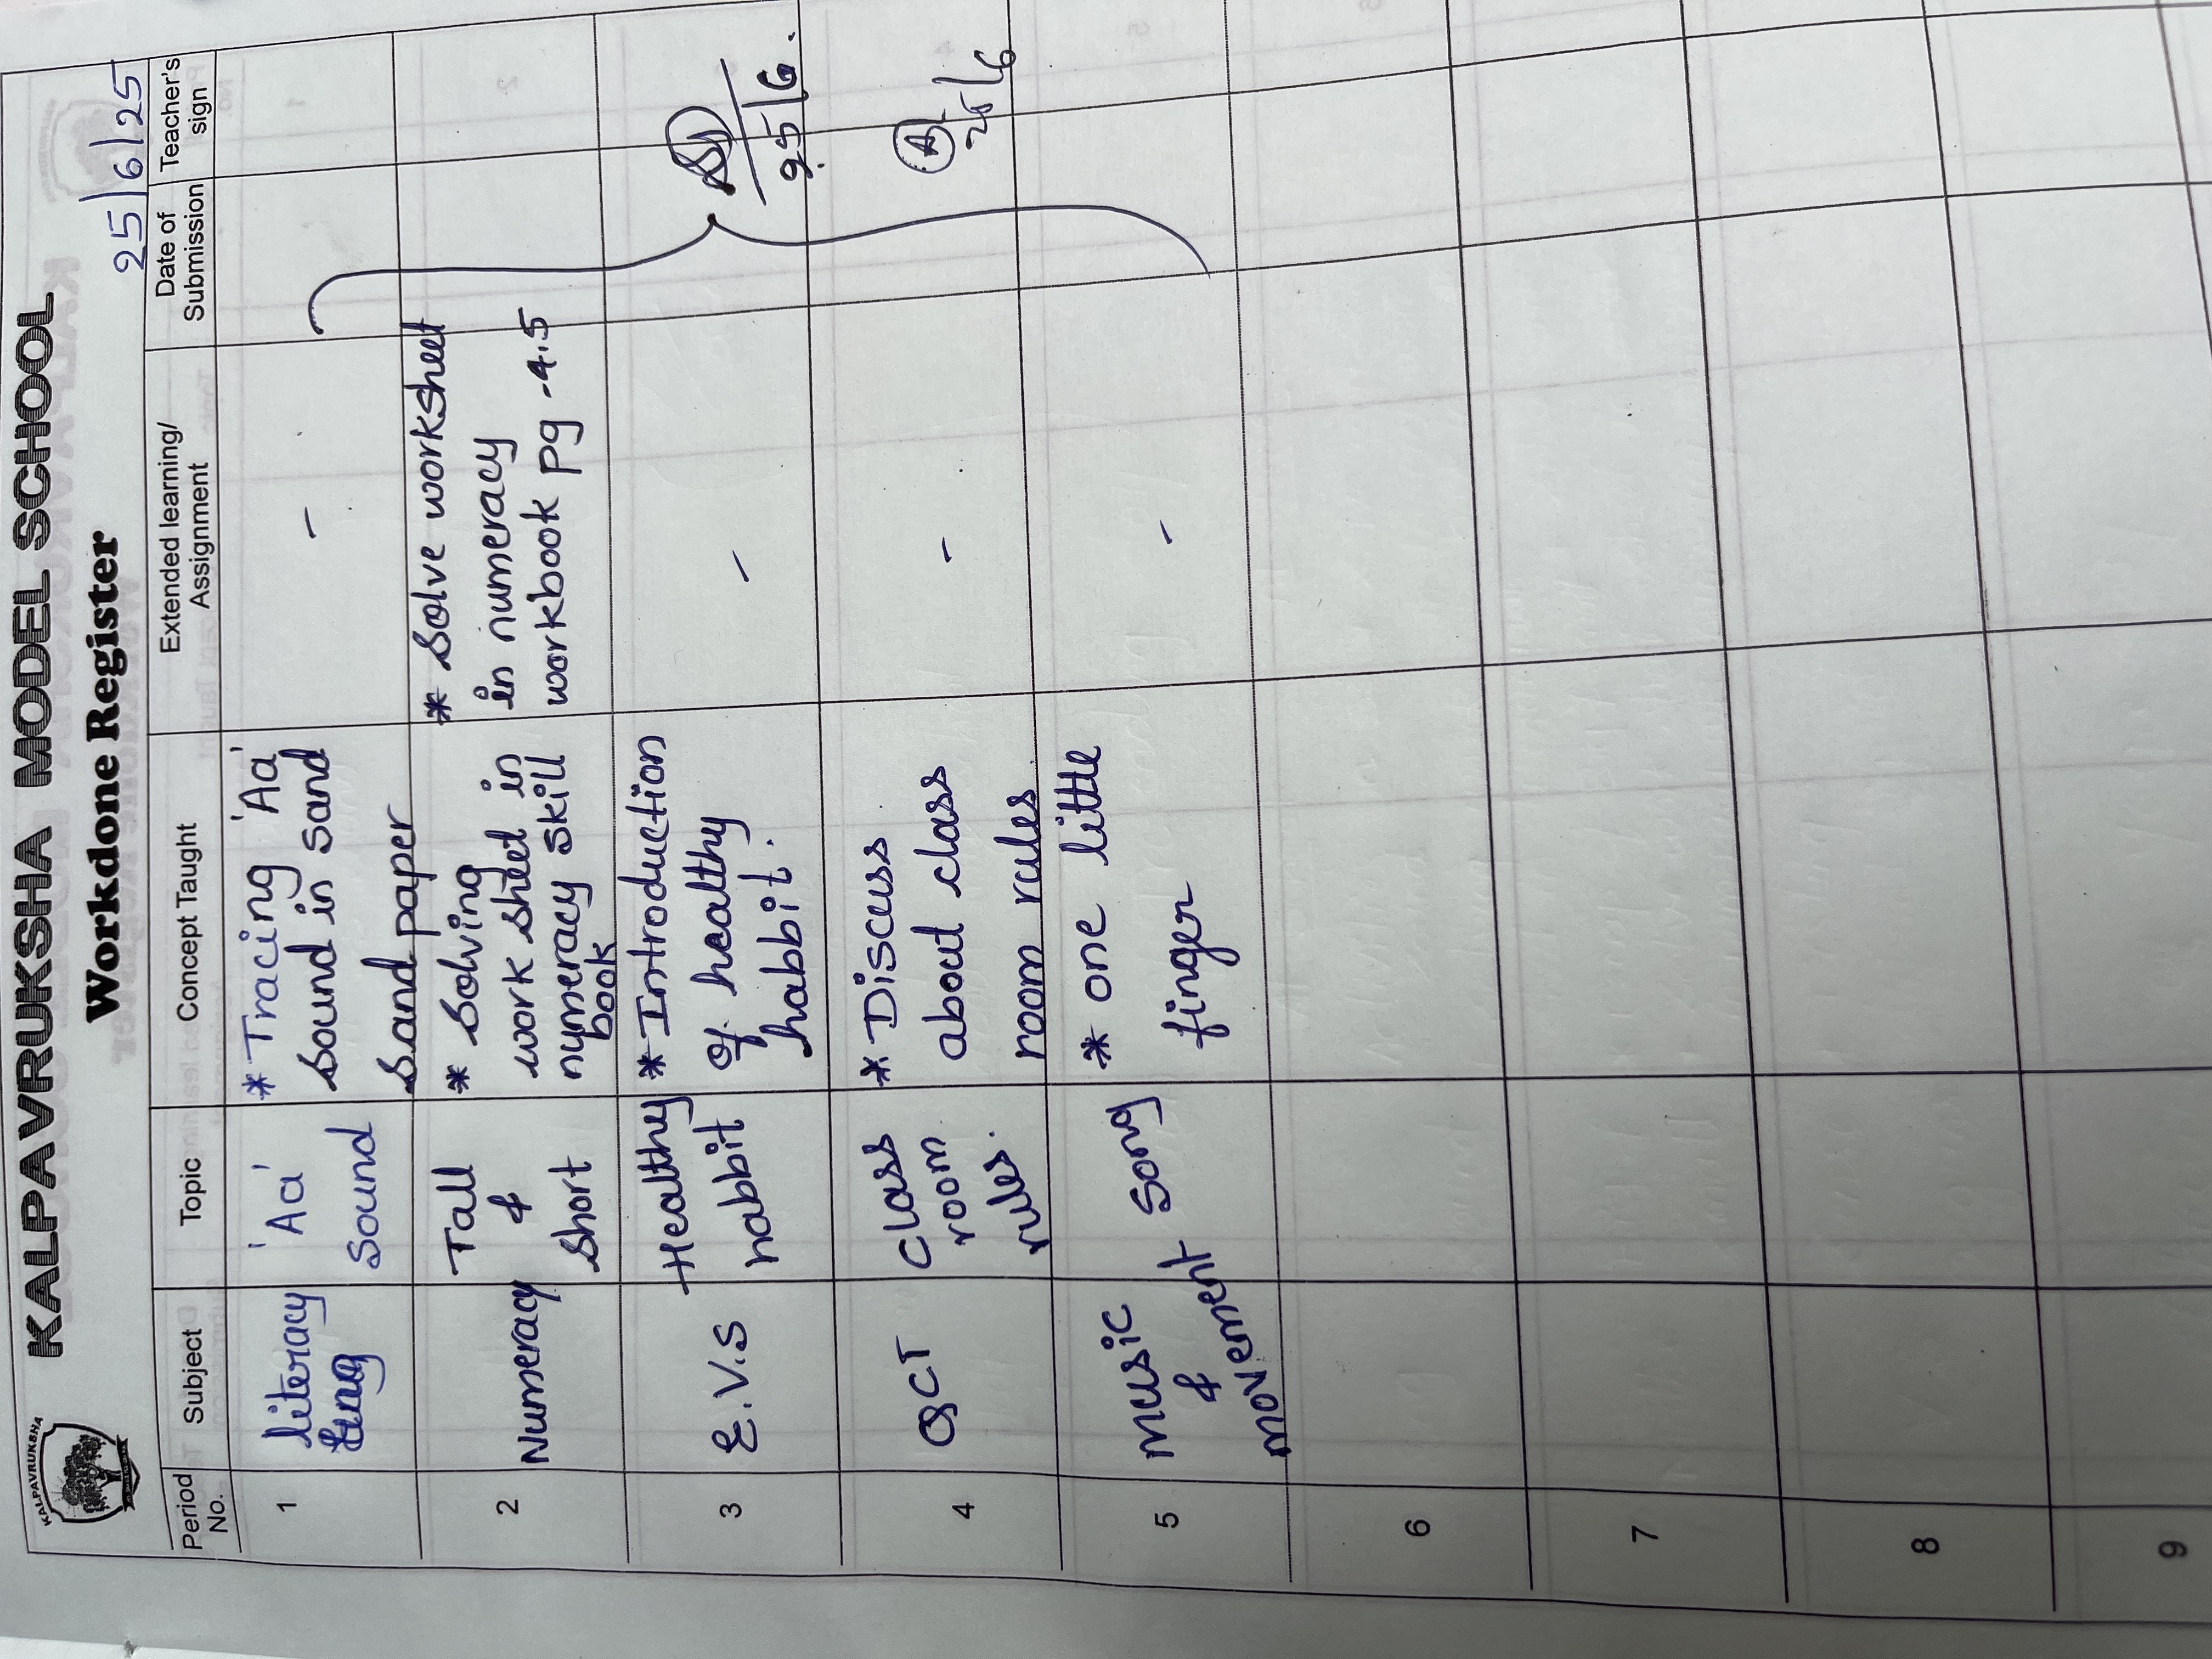 KALPAVRUKSHA
KALPAVRUKSHA MODEL SCHOOL
Workdone Register
25/6/25
Period No.
Subject
Topic
Concept Taught
Extended learning/ Assignment
Date of Submission
Teacher's sign
1
literacy
'Aa'
sound
* Tracing 'Aa'
sound in sand
sand paper
-
2
Numeracy
Tall
&
short
* Solving
work sheet in
nymeracy skill
book
* Solve worksheet
in numeracy
workbook pg -4.5
3
E.V.S
Healthy
habbit
* Introduction
of healthy
habbit.
-
25/6.
4
Class
room
rules.
* Discuss
about class
room rules
-
25/6
5
music
&
movement
song
* one little
finger
-
6
7
8
9